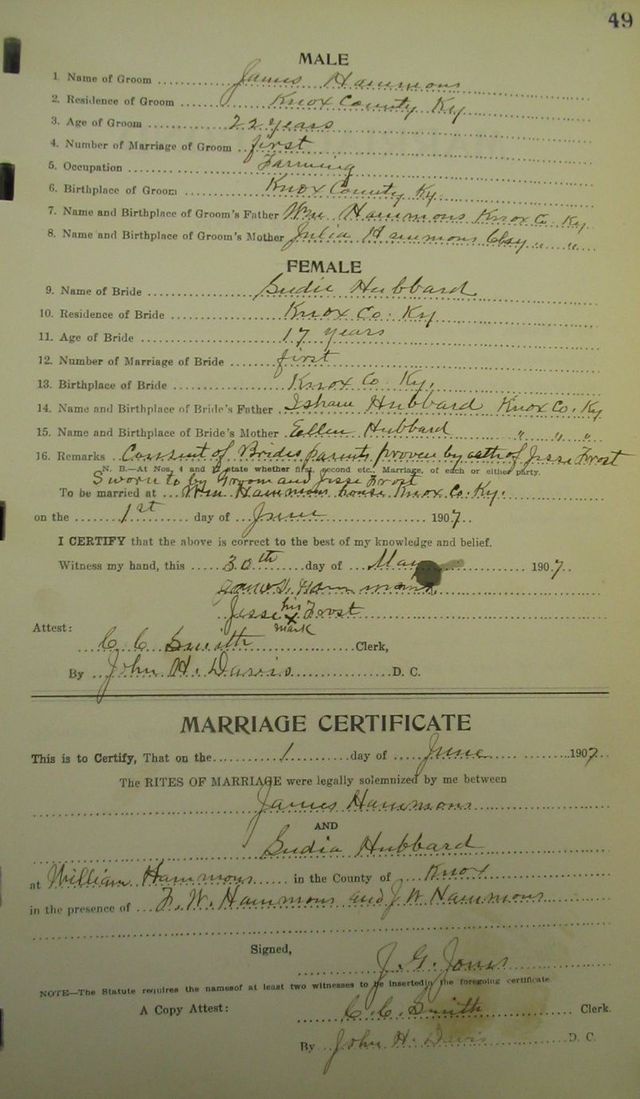 49
MALE
1. Name of Groom James Hammons
2. Residence of Groom Knox County Ky
3. Age of Groom 22 years
4. Number of Marriage of Groom first
5. Occupation Farming
6. Birthplace of Groom Knox County Ky.
7. Name and Birthplace of Groom's Father Wm Hammons Knox Co. Ky
8. Name and Birthplace of Groom's Mother Julia Hammons Clay " "
FEMALE
9. Name of Bride Hubbard
10. Residence of Bride Knox Co. Ky
11. Age of Bride 17 years
12. Number of Marriage of Bride first
13. Birthplace of Bride Knox Co Ky.
14. Name and Birthplace of Bride's Father Isham Hubbard Knox Co. Ky
15. Name and Birthplace of Bride's Mother Ellen Hubbard " " "
16. Remarks Consent of Brides parents proven by oath of Jesse Frost
N. B.—At Nos. 4 and 12 state whether first, second etc. Marriage, of each or either party.
Sworn to by Groom and Jesse Frost
To be married at Wm Hammons house Knox Co. Ky.
on the 1st day of June 1907
I CERTIFY that the above is correct to the best of my knowledge and belief.
Witness my hand, this 30th day of May 1907
James Hammons
Jesse his x mark Frost
Attest:
C. C. Smith Clerk,
By John H. Davis D. C.
MARRIAGE CERTIFICATE
This is to Certify, That on the 1 day of June 1907
The RITES OF MARRIAGE were legally solemnized by me between
James Hammons
AND
Hubbard
at William Hammons in the County of Knox
in the presence of F. W. Hammons and J W Hammons
Signed,
J. G. Jones
NOTE—The Statute requires the namesof at least two witnesses to be insertedin the foregoing certificate
A Copy Attest: C. C. Smith Clerk.
By John H. Davis D. C.